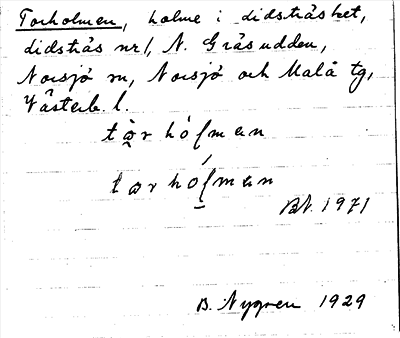 Torholmen, holme i didsträsket,
didsträs nr1, N. Gräsudden,
Norsjö sn, Norsjö och Malå tg,
Västerb. l.
B.N. 1971
B. Nygren 1929